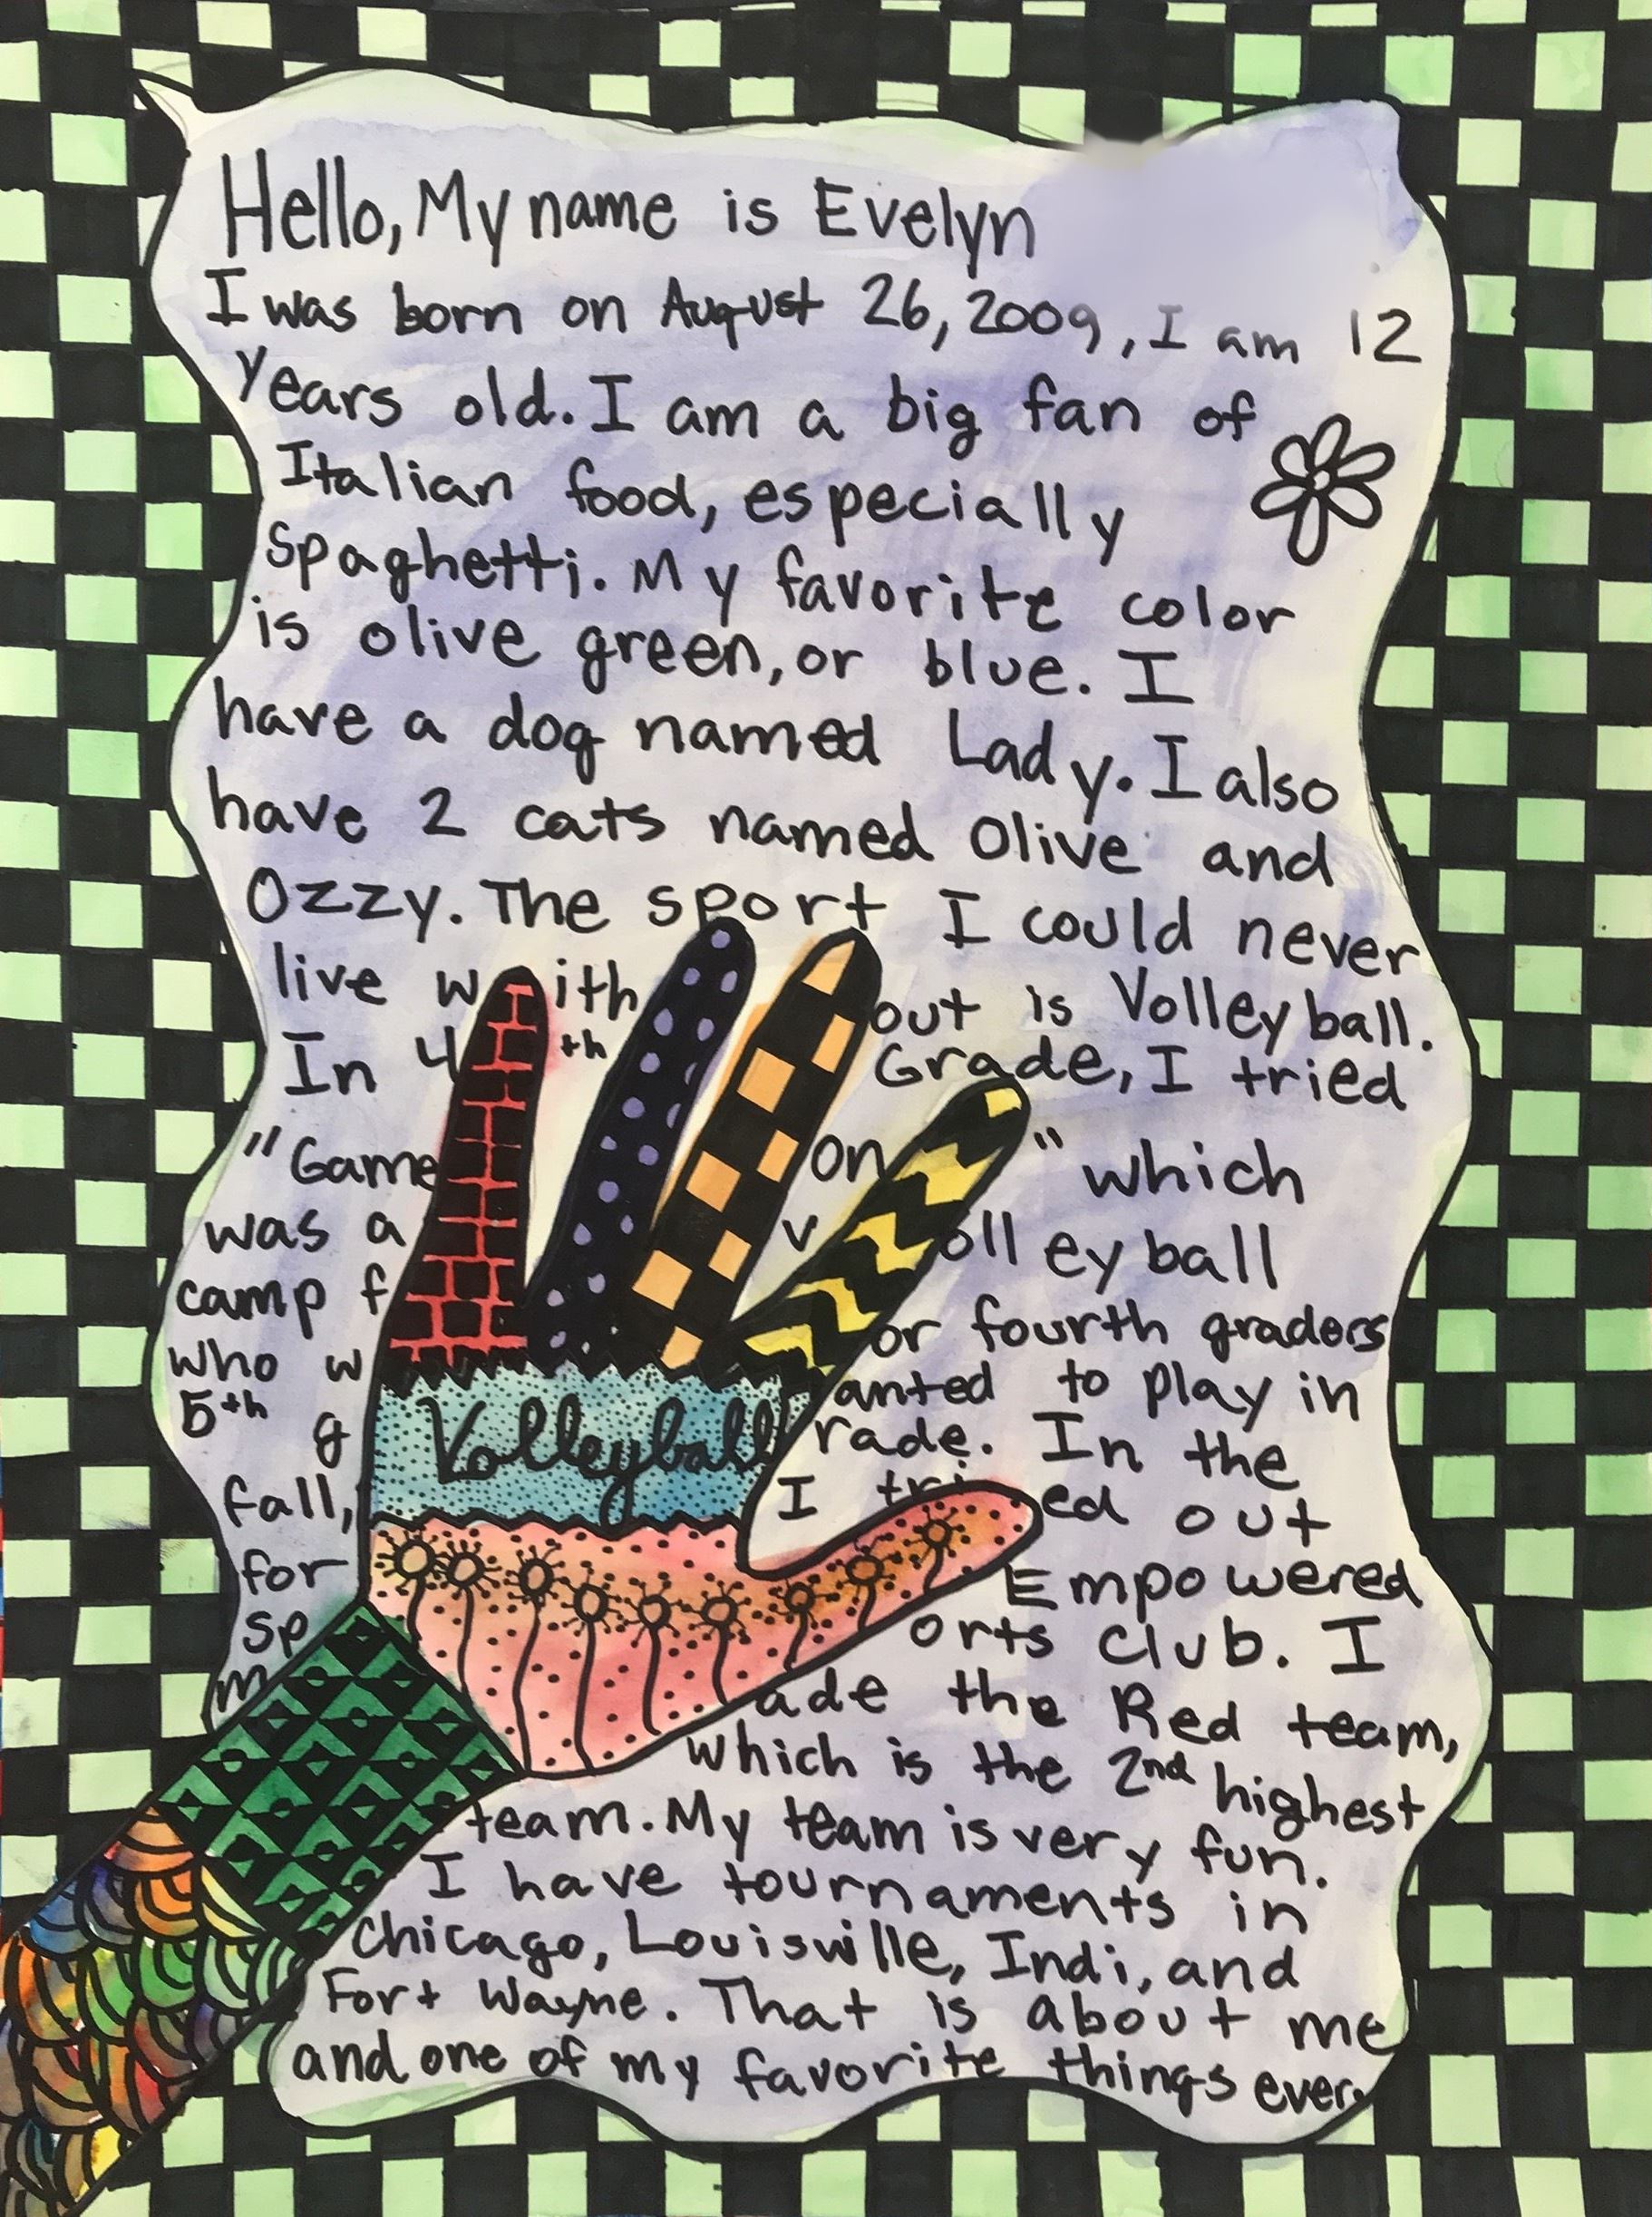 Hello, My name is Evelyn
I was born on August 26, 2009, I am 12
years old. I am a big fan of
Italian food, especially
spaghetti. My favorite color
is olive green, or blue. I
have a dog named Lady. I also
have 2 cats named Olive and
Ozzy. The sport I could never
live with out is Volleyball.
In 4th Grade, I tried
"Game on" which
was a volleyball
camp for fourth graders
who wanted to play in
5th grade. In the
fall, I tried out
for Empowered
sports club. I
made the Red team,
which is the 2nd highest
team. My team is very fun.
I have tournaments in
Chicago, Louisville, Indi, and
Fort Wayne. That is about me
and one of my favorite things ever.
Volleyball